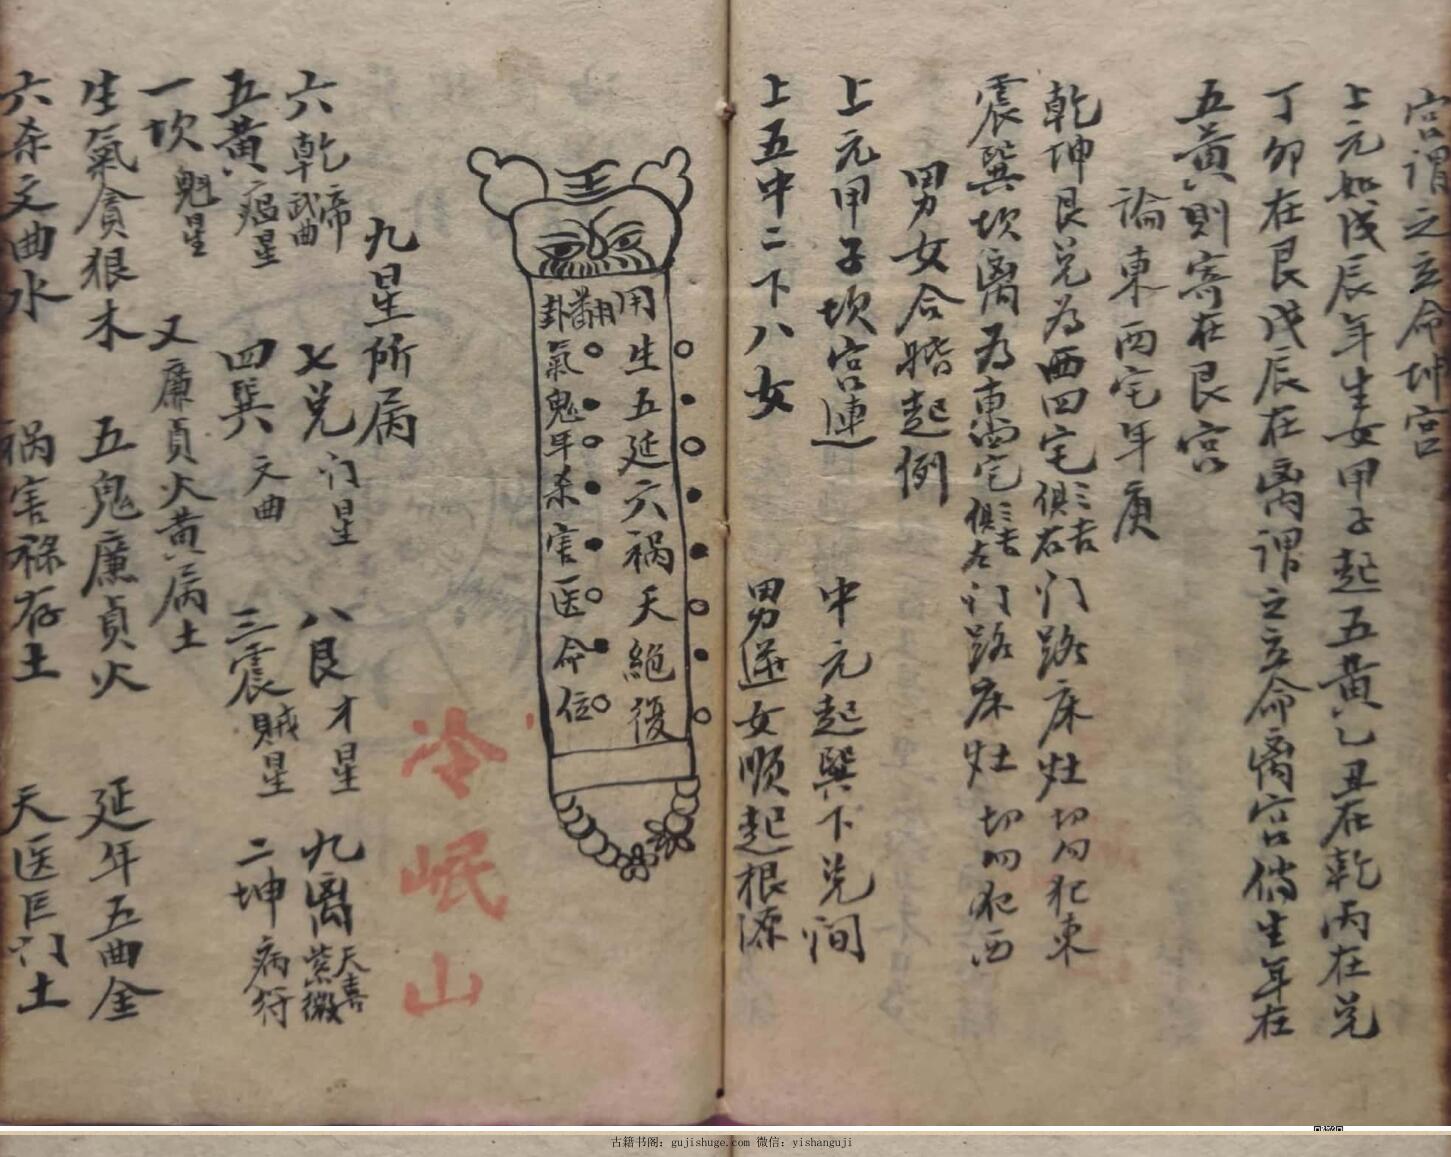 宫谓之立命坤宫
上元如戊辰年生女甲子起五黄乙丑在乾丙在兑
丁卯在艮戊辰在离谓之立命离宫倘生年在
五黄則寄在艮宫
論東西宅年庚
乾坤艮兑為西四宅三吉俱右门路床灶切勿犯東
震巽坎离為東四宅三吉俱左门路床灶切勿犯西
男女合婚起例
上元甲子坎宫連 中元起巽下兑间
上五中二下八女 男逆女顺起根源
王
用翻卦
生五延六祸天絶復
氣鬼年杀害医命位
冷岷山
九星所属
六乾帝武曲 七兑门星 八艮才星 九离天喜紫微
五黄瘟星 四巽文曲 三震贼星 二坤病符
一坎魁星 又廉貞火黄属土
生氣貪狼木 五鬼廉貞火 延年五曲金
六杀文曲水 祸害禄存土 天医巨门土
古籍书阁：gujishuge.com 微信：yishanguji